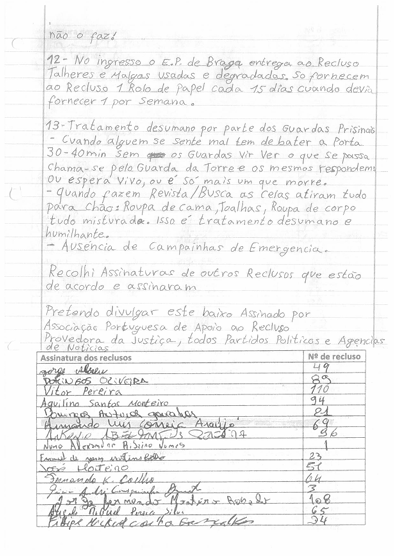 não o faz!
12- No ingresso o E.P. de Braga entrega ao Recluso
Talheres e Malgas usadas e degradadas. So fornecem
ao Recluso 1 Rolo de Papel cada 15 dias cuando devia
fornecer 1 por Semana.
13- Tratamento desumano por parte dos Guardas Prisinais
- Cuando alguem se sente mal tem de bater a Porta
30-40min Sem os Guardas Vir Ver o que se passa
Chama-se pelo Guarda da Torre e os mesmos respondem
Ou espera Vivo, ou é só mais um que morre.
- quando fazem Revista/Busca as Celas atiram tudo
para Chão: Roupa de Cama, Toalhas, Roupa de corpo
tudo misturada. Isso é tratamento desumano e
humilhante.
- Ausencia de Campainhas de Emergencia.
Recolhi Assinaturas de outros Reclusos que estão
de acordo e assinaram
Pretendo divulgar este baixo Assinado por
Associação Portuguesa de Apoio ao Recluso
Provedora da Justiça, todos Partidos Politicos e Agencias
de Noticias
Assinatura dos reclusos Nº de recluso
49
Domingos Oliveira 89
Vitor Pereira 110
Aquilino Santos Monteiro 94
Domingos Antonio 21
Armando Luis Correia Araújo 69
96
Nuno Alexandre 1
23
José Monteiro 51
Fernando 64
3
Jorge Fernando 108
Miguel Pereira Silva 65
Filipe Miguel Costa 24